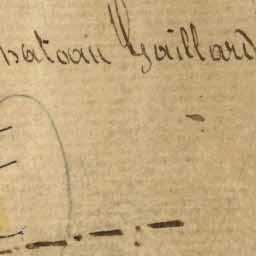 hataau Gaillard